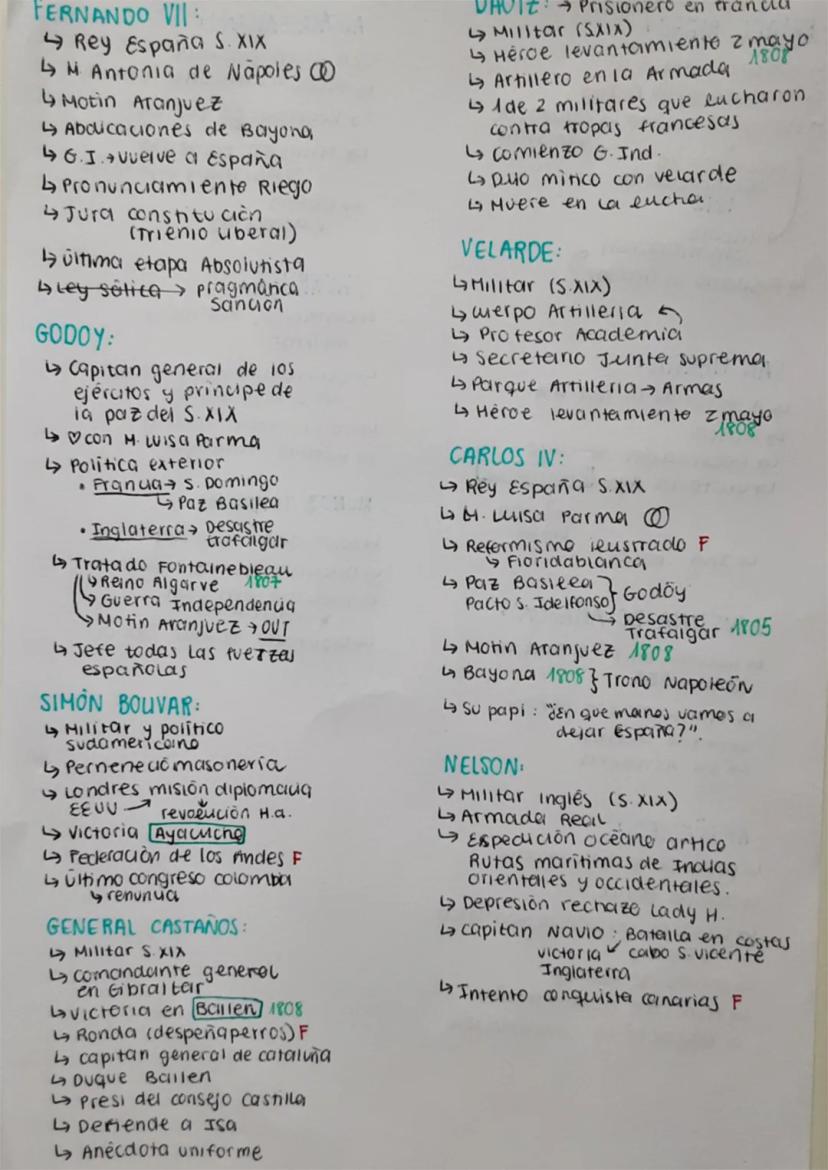 FERNANDO VII:
↳ Rey España S. XIX
↳ M Antonia de Nápoles
↳ Motín Aranjuez
↳ Abdicaciones de Bayona
↳ G.I. → vuelve a España
↳ Pronunciamiento Riego
↳ Jura constitución
(Trienio liberal)
↳ última etapa Absolutista
↳ Ley sálica → pragmática
Sanción
GODOY:
↳ Capitan general de los
ejércitos y principe de
la paz del S. XIX
↳ ♡ con M. Luisa Parma
↳ Política exterior
• Francia → S. Domingo
↳ Paz Basilea
• Inglaterra → Desastre
trafalgar
↳ Tratado Fontainebleau
↳ Reino Algarve 1807
↳ Guerra Independencia
↳ Motín Aranjuez → OUT
↳ Jefe todas las fuerzas
españolas
SIMÓN BOLIVAR:
↳ Militar y político
sudamericano
↳ Perteneció masonería
↳ Londres misión diplomacia
EEUU → revolución H.a.
↳ Victoria Ayacucho
↳ Federación de los Andes F
↳ último congreso colombia
↳ renuncia
GENERAL CASTAÑOS:
↳ Militar S. XIX
↳ comandante general
en Gibraltar
↳ victoria en Bailen 1808
↳ Ronda (despeñaperros) F
↳ capitan general de cataluña
↳ Duque Bailen
↳ Presi del consejo Castilla
↳ Defiende a Isa
↳ Anécdota uniforme
DAOIZ: → Prisionero en francia
↳ Militar (S.XIX)
↳ Héroe levantamiento 2 mayo
1808
↳ Artillero en la Armada
↳ 1 de 2 militares que lucharon
contra tropas francesas
↳ comienzo G. Ind.
↳ Duo mítico con velarde
↳ Muere en la lucha
VELARDE:
↳ Militar (S.XIX)
↳ cuerpo Artilleria
↳ Profesor Academia
↳ Secretario Junta suprema
↳ Parque Artilleria → Armas
↳ Héroe levantamiento 2 mayo
1808
CARLOS IV:
↳ Rey España S.XIX
↳ M. Luisa Parma
↳ Reformismo ilustrado F
↳ Floridablanca
↳ Paz Basilea
Pacto S. Idelfonso } Godoy
↳ Desastre
Trafalgar 1805
↳ Motín Aranjuez 1808
↳ Bayona 1808 } Trono Napoleón
↳ su papi: "¿En que manos vamos a
dejar España?".
NELSON:
↳ Militar inglés (S.XIX)
↳ Armada Real
↳ Espedición océano artico
Rutas marítimas de Indias
orientales y occidentales.
↳ Depresión rechazo Lady H.
↳ capitan Navio: Batalla en costas
victoria ↙ cabo S. vicente
Inglaterra
↳ Intento conquista canarias F